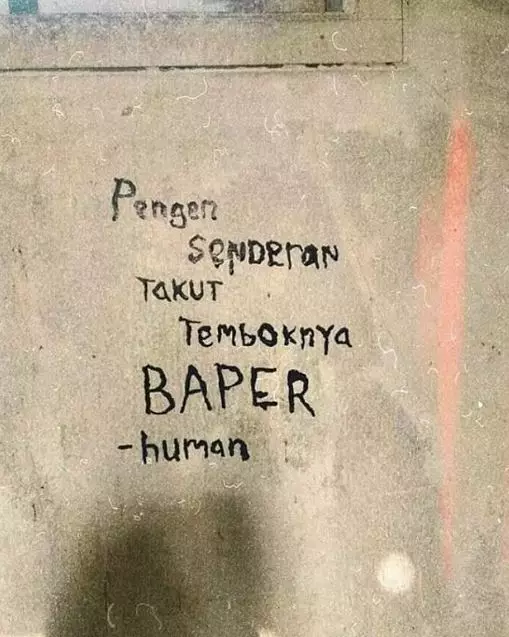 Pengen
SENDERAN
TAKUT
TEMBOKNYA
BAPER
-human